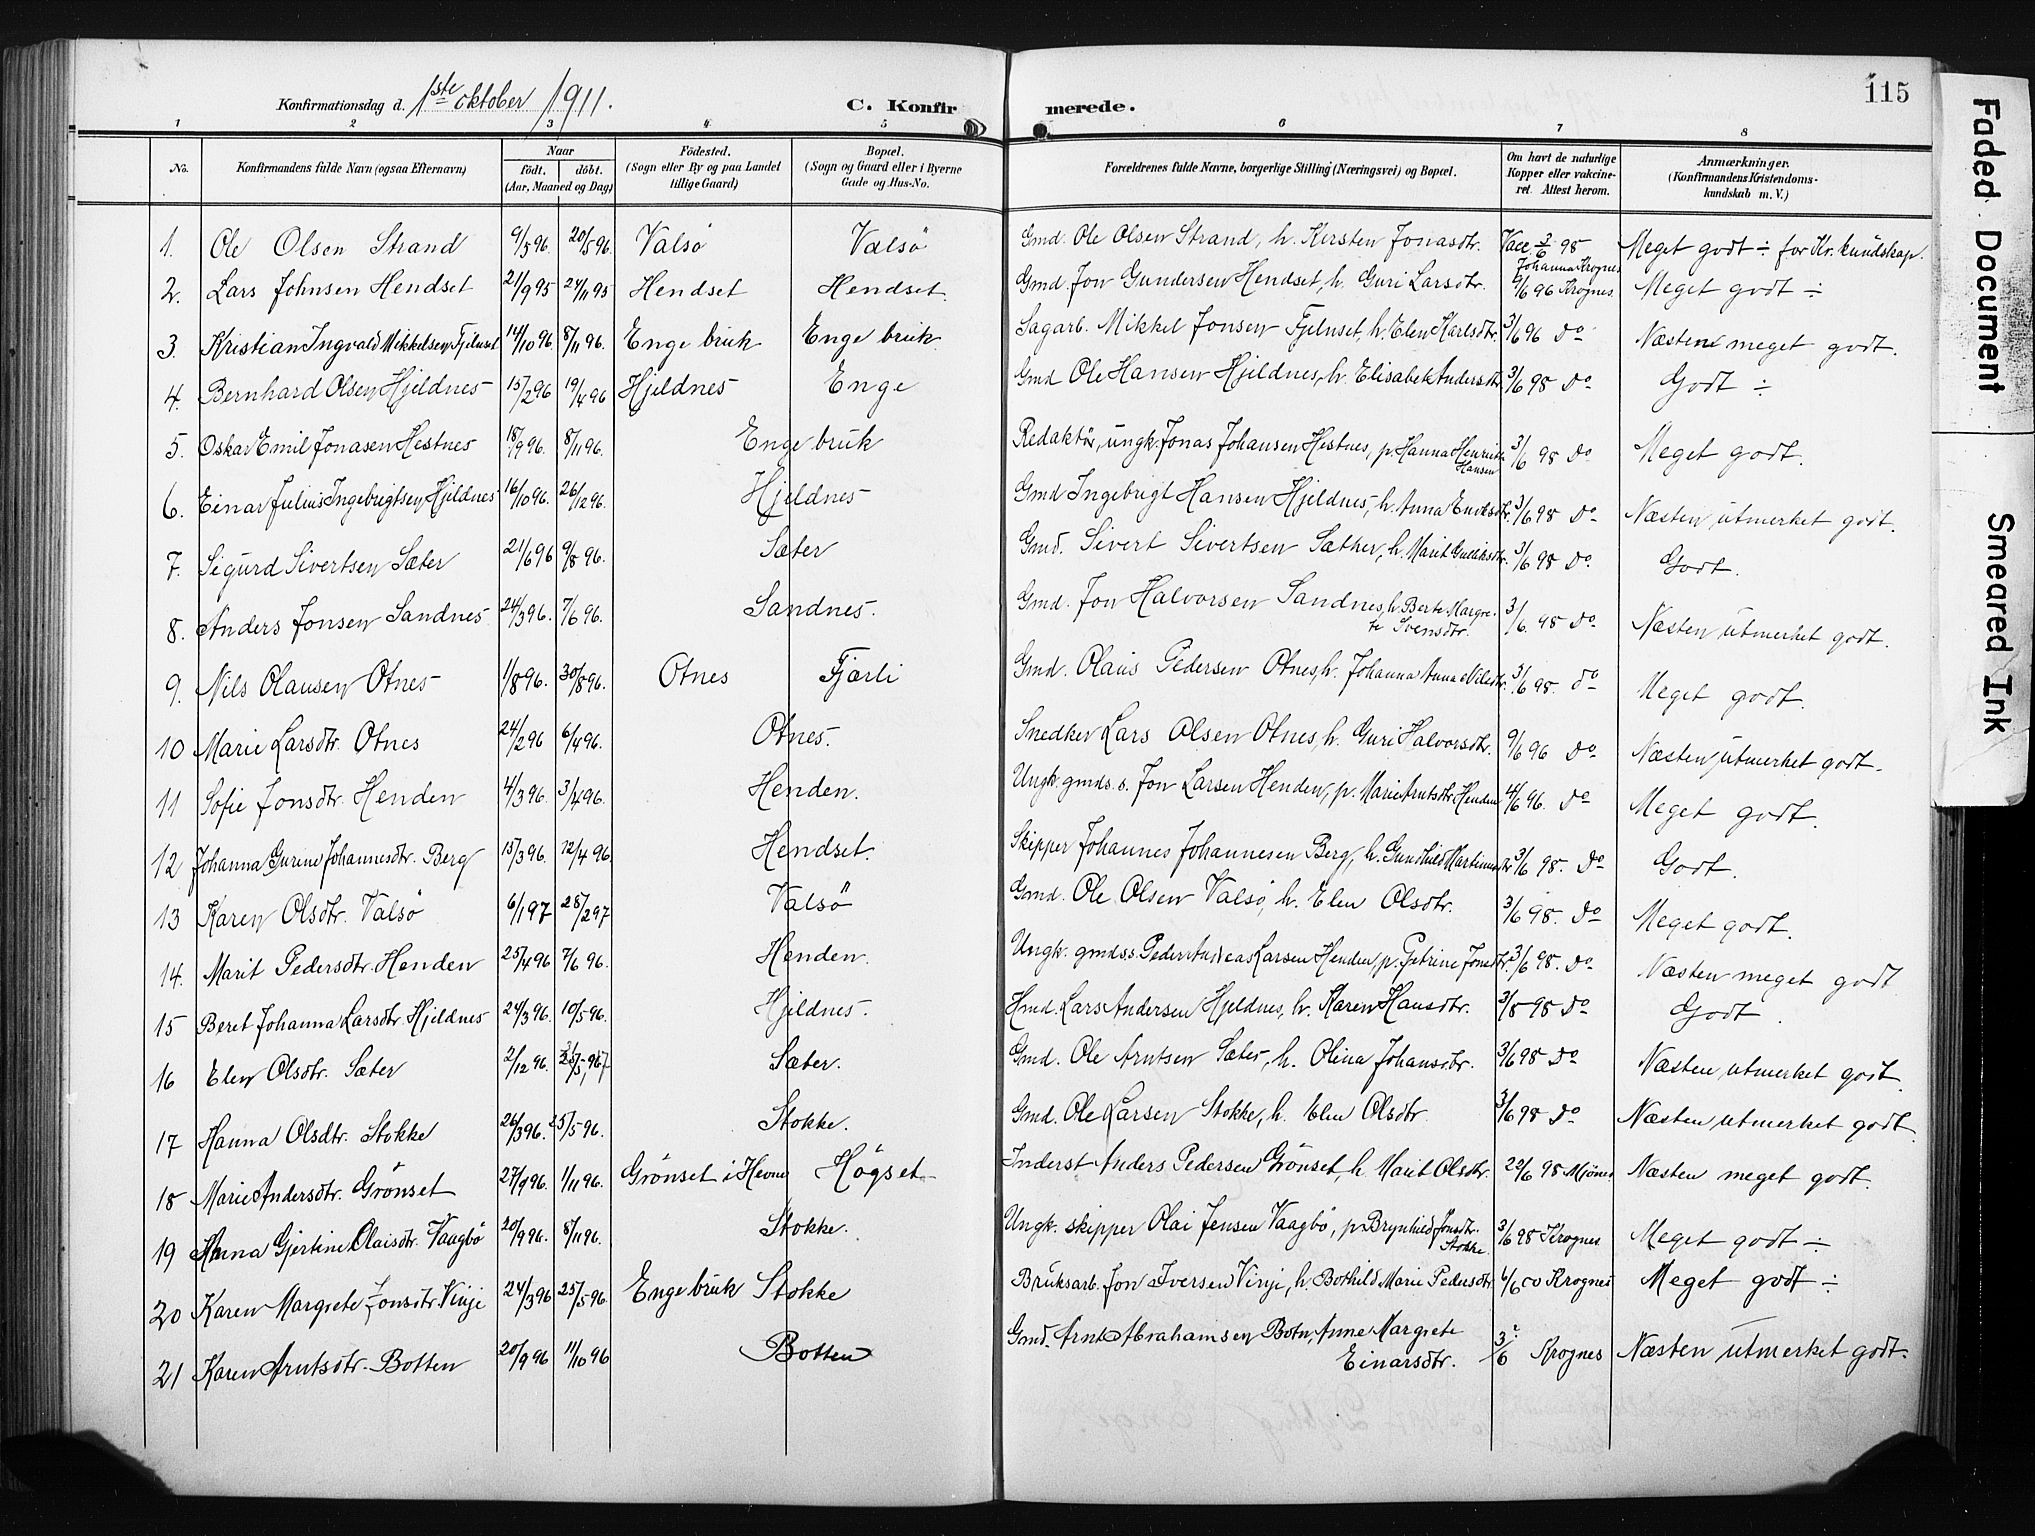 115
Konfirmationsdag d. 1ste oktober 1911.
C. Konfirmerede.
1 2 3 4 5 6 7 8
No. Konfirmandens fulde Navn (ogsaa Efternavn) Naar født, døbt. (Aar, Maaned og Dag) Fødested. (Sogn eller By og paa Landet tillige Gaard) Bopæl. (Sogn og Gaard eller i Byerne Gade og Hus-No. Forældrenes fulde Navne, borgerlige Stilling (Næringsvei) og Bopæl. Om havt de naturlige Kopper eller vaccineret. Attest herom. Anmærkninger. (Konfirmandens Kristendomskundskab m. V.)
1. Ole Olsen Strand 9/5 96. 20/5 96. Valsö Valsö Gmd. Ole Olsen Strand, h. Kirsten Jonasdtr. Vacc. 3/6 98 Meget godt ÷ for Kr. kundskap.
2. Lars Johnsen Hendset 21/9 95 24/11 95 Hendset Hendset. Gmd. Jon Gundersen Hendset, h. Guri Larsdtr. Johanna Krognes 9/6 96 Krognes. Meget godt ÷
3. Kristian Ingvald Mikkelsen Fjelnset 14/10 96. 8/11 96. Enge bruk Enge bruk. Sagarb. Mikkel Jonsen Fjelnset, h. Elen Karlsdtr. 3/6 96 do Næsten meget godt.
4. Bernhard Olsen Hjeldnes 15/2 96 19/4 96 Hjeldnes Enge Gmd Ole Hansen Hjeldnes, h. Elisabet Andersdtr 3/6 98 do Godt ÷
5. Oskar Emil Jonasen Hestnes 18/9 96. 8/11 96. Enge bruk Redaktör, ungk. Jonas Johansen Hestnes, p. Hanna Henrikke Hansen 3/6 98 do Meget godt.
6. Einar Julius Ingebrigtsen Hjeldnes 16/10 96. 26/12 96. Hjeldnes Gmd Ingebrigt Hansen Hjeldnes, h. Anna 3/6 98 do Næsten utmerket godt.
7. Sigurd Sivertsen Sæter 21/6 96 9/8 96. Sæter Gmd. Sivert Sivertsen Sæther, h. Marit Gudliksdtr. 3/6 98 do. Godt.
8. Anders Jonsen Sandnes 24/3 96. 7/6 96. Sandnes. Gmd. Jon Halvorsen Sandnes, h. Berte Margrete Svensdtr. 3/6. 98 do Næsten utmerket godt.
9. Nils Olausen Otnes 1/8 96. 30/8 96. Otnes Fjærli Gmd. Olaus Pedersen Otnes, h. Johanna Anna Nilsdtr. 3/6 98. do Meget godt.
10 Marie Larsdtr. Otnes 24/2 96 6/4 96. Otnes. Snedker Lars Olsen Otnes, h. Guri Halvorsdtr. 9/6 96 do Næsten utmerket godt.
11 Sofie Jonsdtr. Henden 4/3 96. 3/4 96. Henden. Ungk. gmds. s. Jon Larsen Henden, p. Marie Arntsdtr. Henden 4/6 96. do Meget godt.
12 Johanna Gurine Johannesdtr. Berg 15/3 96. 12/4 96 Hendset. Skipper Johannes Johannesen Berg, h. Gundhild Martinusdtr 3/6 98. do Godt.
13 Karen Olsdtr. Valsö 6/1 97 28/2 97 Valsö Gmd. Ole Olsen Valsö, h. Elen Olsdtr. 3/6 98. do Meget godt.
14. Marit Pedersdtr. Henden 25/4 96 7/6 96. Henden. Ungk. gmds.s. Peder Andreas Larsen Henden, p. Petrine Jonsdtr. 3/6 98. do Næsten meget godt
15 Beret Johanna Larsdtr. Hjeldnes 24/3 96. 10/5 96. Hjeldnes. Hmd. Lars Andersen Hjeldnes, h. Karen Hansdtr. 3/8 98 do Godt.
16 Elen Olsdtr. Sæter 2/12 96. Sæter. Gmd. Ole Arntsen Sæter, h. Olina Johansdtr. 3/6 98 do Næsten utmerket godt.
17 Hanna Olsdtr. Stokke 26/3 96. 25/5 96. Stokke. Gmd. Ole Larsen Stokke, h. Elen Olsdtr 3/6 98 do Næsten utmerket godt.
18 Marie Andersdtr. Grönset 27/9 96. 1/11 96. Grönset i Hevne Högset Inderst Anders Pedersen Grönset, h. Marit Olsdtr. 22/6 98 Mjönes Næsten meget godt.
19 Anna Gjertine Olaisdtr. Vaagbö 20/9 96. 8/11 96. Stokke. Ungk. skipper Olai Jensen Vaagbö, p. Brynhild Jonsdtr. Stokke. 3/6 98 Krognes Meget godt ÷
20 Karen Margrete Jonsdtr. Vinje 24/3 96 25/5 96. Enge bruk Stokke Bruksarb. Jon Iversen Vinje, h. Bothild Marie Pedersdtr 4/6 00 Krognes Meget godt ÷
21 Karen Arntsdtr. Botten 20/9 96 11/10 96 Botten Gmd. Arnt Abrahamsen Botn, Anne Margrete Einarsdtr. 3/6 Krognes Næsten utmerket godt.
Faded Document
Smeared Ink